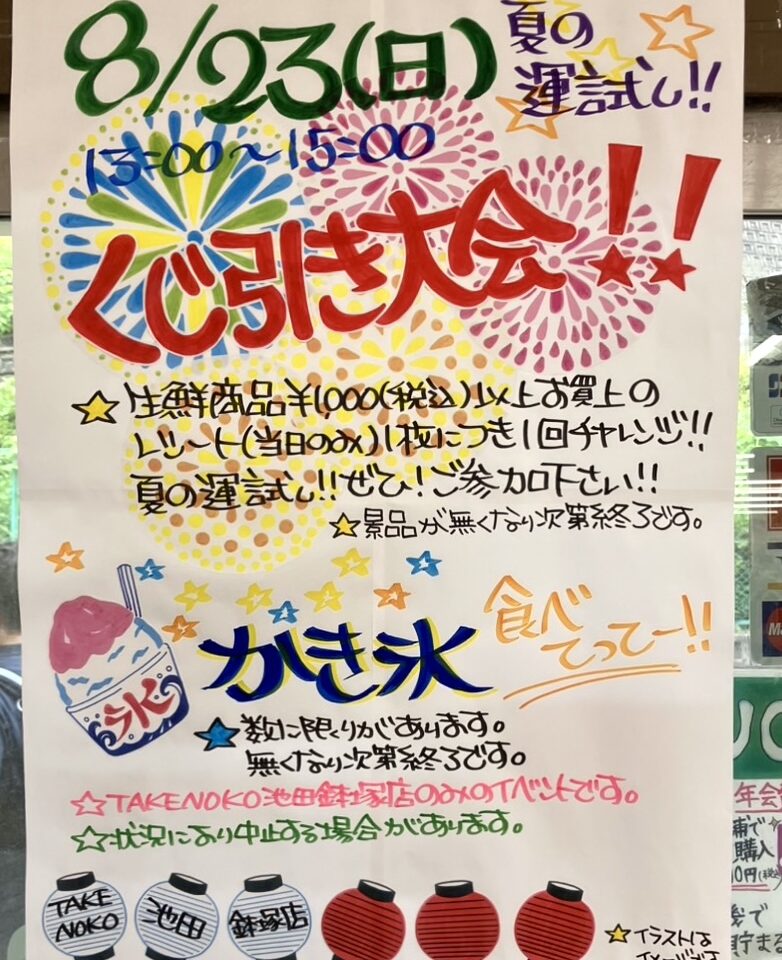 8/23(日)
夏の
運試し!!
13:00〜15:00
くじ引き大会!!
生鮮商品¥1,000(税込)以上お買上の
レシート(当日のみ)1枚につき1回チャレンジ!!
夏の運試し!!ぜひ!ご参加下さい!!
景品が無くなり次第終了です。
かき氷
食べ
てってー!!
氷
数に限りがあります。
無くなり次第終了です。
☆TAKENOKO池田鉢塚店のみのイベントです。
☆状況により中止する場合があります。
TAKE
NOKO
池田
鉢塚店
イラストは
年会
購入
貯まる